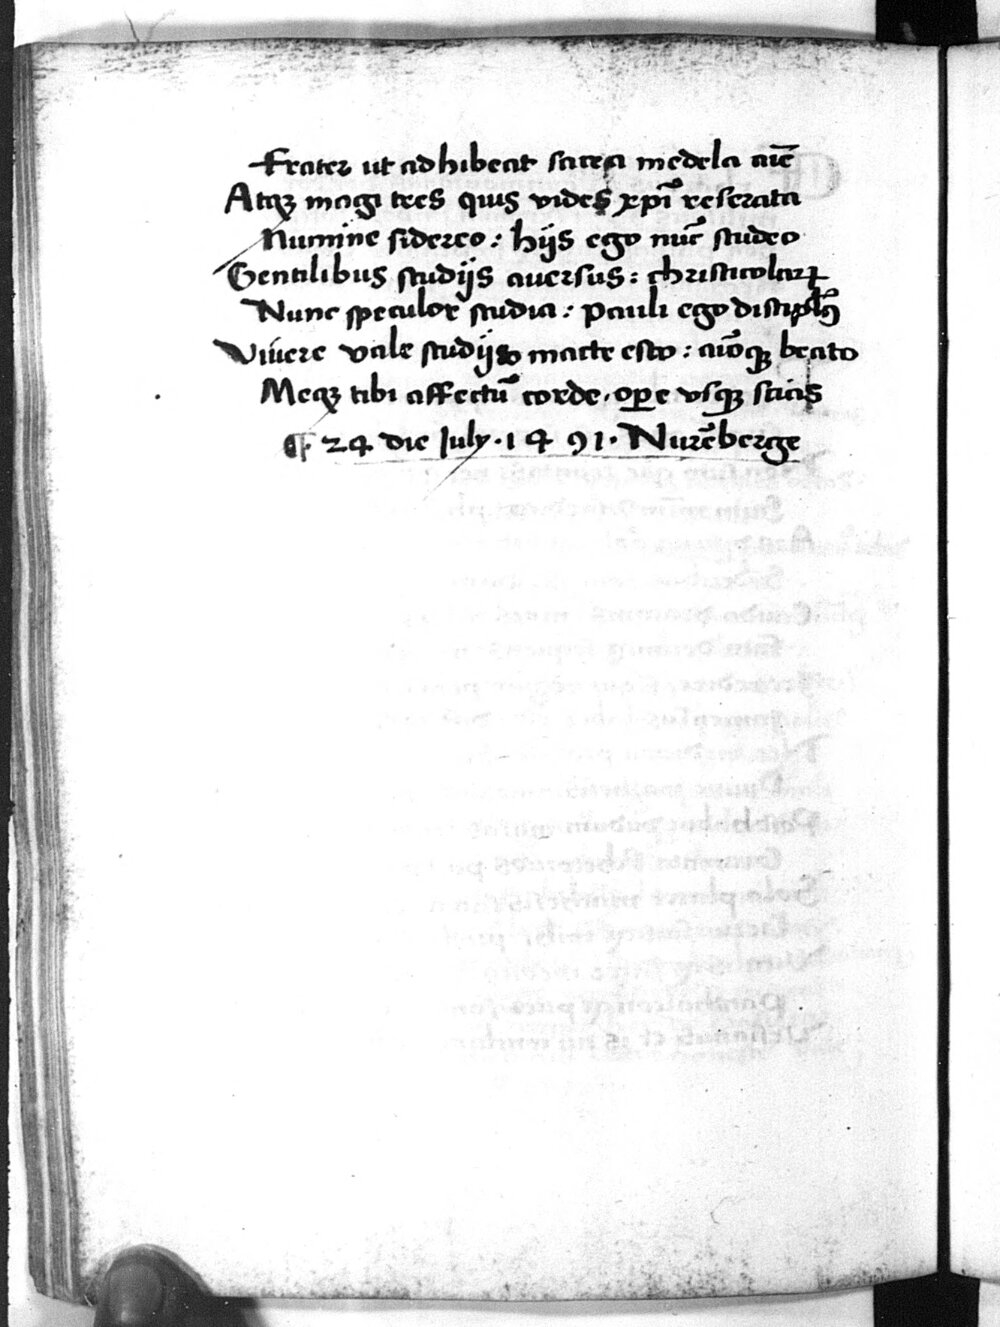 Frater ut adhibeat sacra medela aīe
Atqꝫ magi tres quis vides xp̄i reserata
Numine sidereo: hijs ego nūc studeo
Gentilibus studijs aversus: christicolarꝝ
Nunc speculor studia: pauli ego discip̄lꝰ
Viuere vale studijsqꝫ macte esto: aīoqꝫ beato
Meqꝫ tibi affectū corde, ope usqꝫ scias
¶ 24 die July · 1491 · Nurēberge